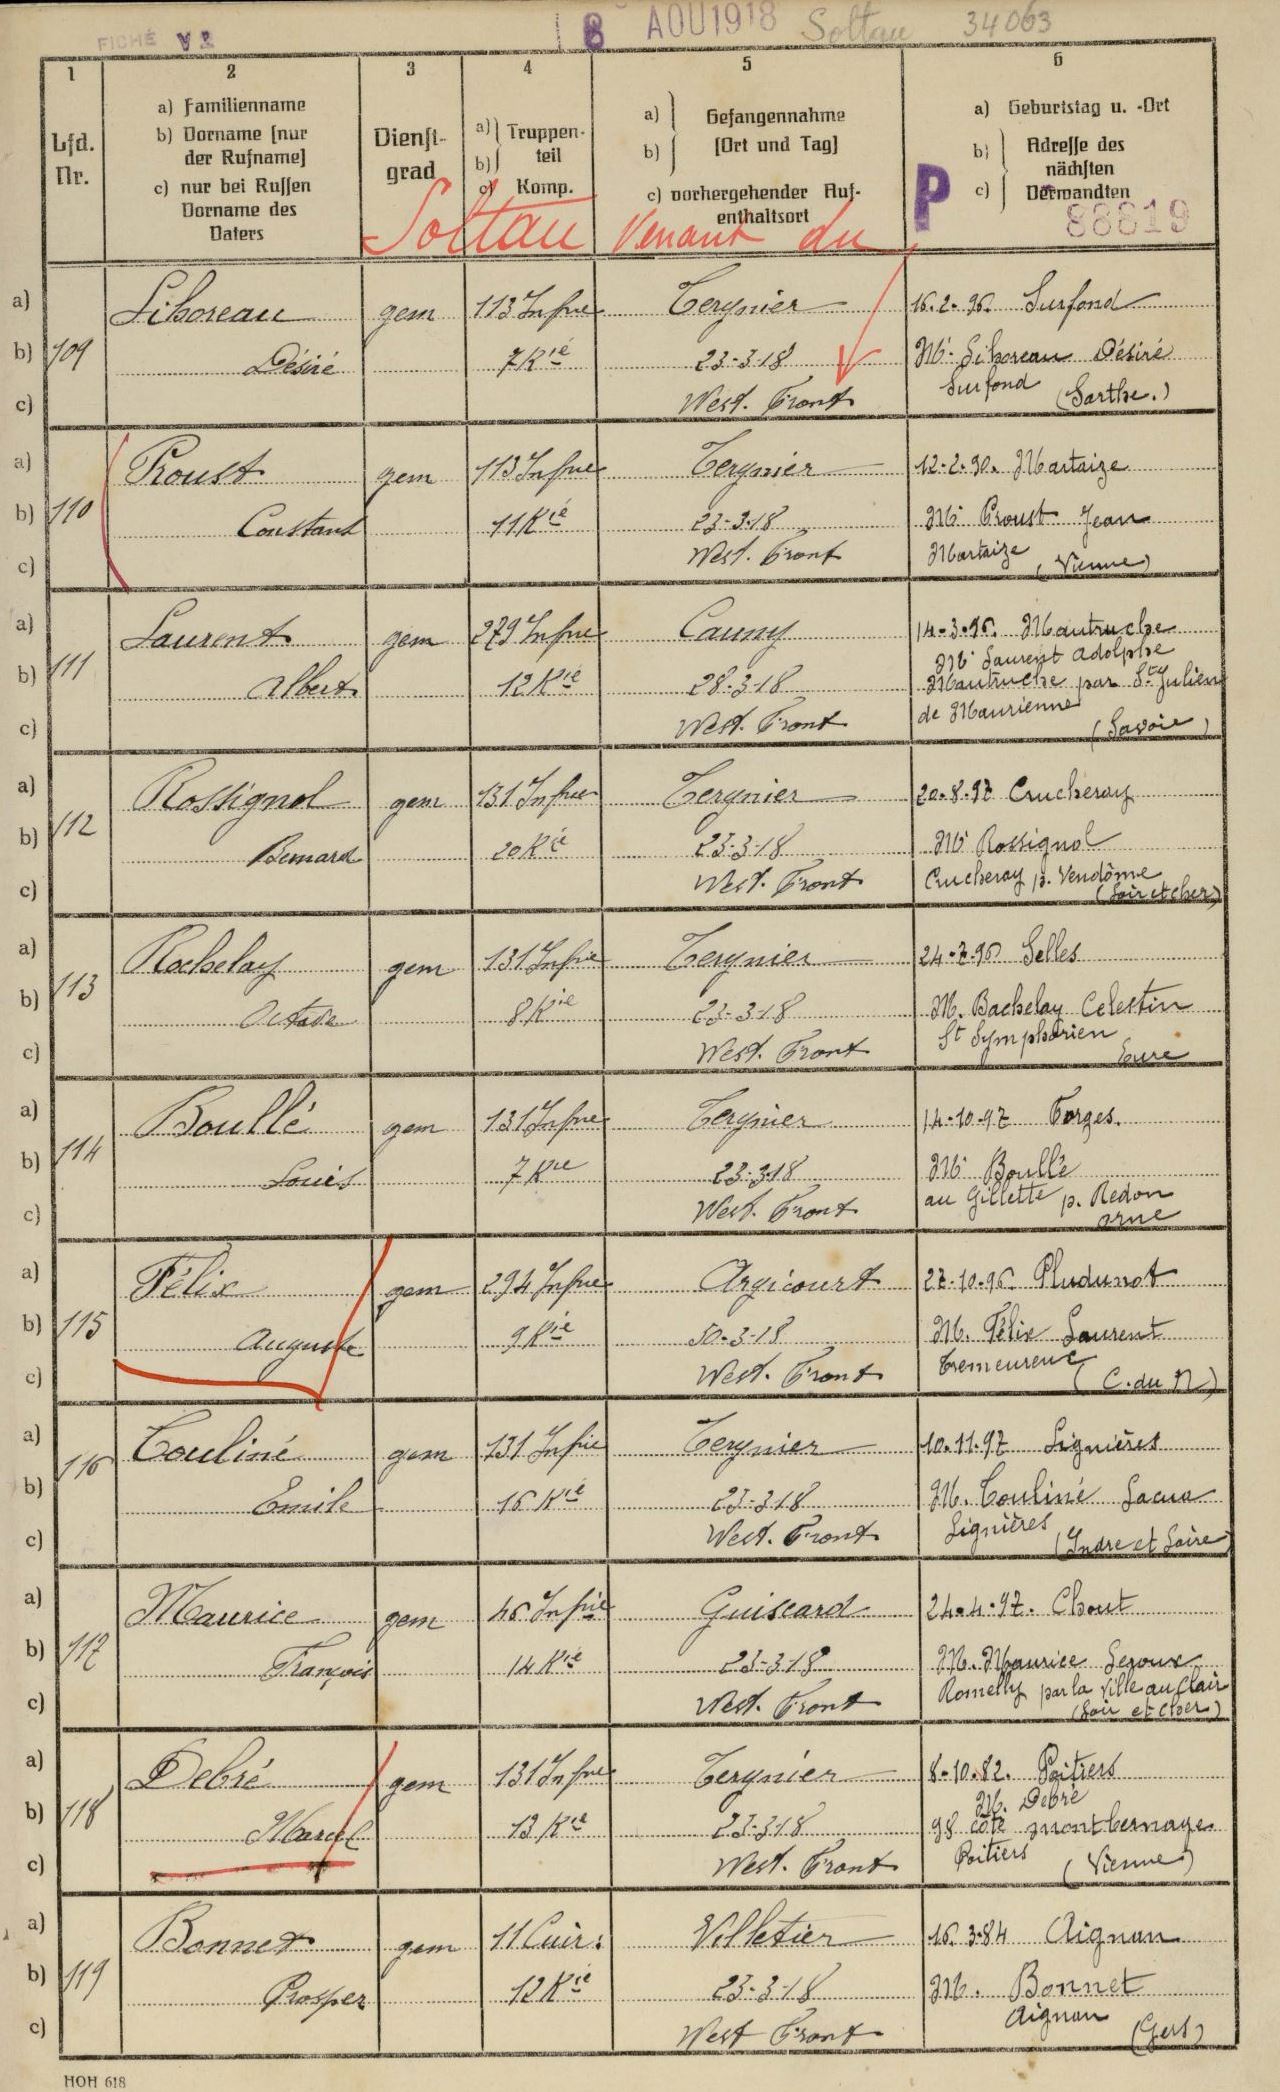 FICHÉ V2
8 AOU 1918 Soltau 34063
1 2 3 4 5 6
Lfd. Nr.
a) Familienname
b) Vorname (nur der Rufname)
c) nur bei Russen Vorname des Vaters
Dienst-grad
a) Truppen-
b) teil
c) Komp.
a) Gefangennahme
b) (Ort und Tag)
c) vorhergehender Auf-enthaltsort
a) Geburtstag u. -Ort
b) Adresse des nächsten
c) Verwandten
P
88819
Soltau Venant du
a) Liboreau gem 113 Infrie Tergnier 16.2.96. Surfond
b) 109 Désiré 7 Kie 23-3-18 Mr Liboreau Désiré
c) West. Front Surfond (Sarthe.)
a) Proust gem 113 Infrie Tergnier 12-2-90. Martaize
b) 110 Constant 11 Kie 23-3-18 Mr Proust Jean
c) West. Front Martaize (Vienne)
a) Laurent gem 279 Infrie Cauny 14-3-96. Mautruche
Mr Laurent Adolphe
b) 111 Albert 12 Kie 28-3-18 Mautruche par St Julien
c) West. Front de Maurienne (Savoie)
a) Rossignol gem 131 Infrie Tergnier 20-8-97 Crucheray
b) 112 Bernard 20 Kie 23-3-18 Mr Rossignol
c) West. Front Crucheray p. Vendôme
(Loir et Cher)
a) Rachelay gem 131 Infrie Tergnier 24-7-96 Selles
b) 113 Octave 8 Kie 23-3-18 M. Bachelay Celestin
c) West. Front St Symphorien
Eure
a) Boullé gem 131 Infrie Tergnier 14-10-97 Forges.
b) 114 Louis 7 Kie 23-3-18 Mr Boullé
c) West. Front au Gillette p. Redon
orne
a) Félix gem 294 Infrie Argicourt 27-10-96. Pludunot
b) 115 Auguste 9 Kie 50-3-18 M. Félix Laurent
c) West. Front Tremeureuc (C. du N)
a) Couliné gem 131 Infrie Tergnier 10.11.97 Lignières
b) 116 Emile 16 Kie 23-3-18 M. Couliné
c) West. Front Lignières (Indre et Loire)
a) Maurice gem 46 Infrie Guiscard 24-4-97. Chout
b) 117 François 14 Kie 23-3-18 M. Maurice Leroux
c) West. Front Romelly par la Ville au Clair
(Loir et Cher)
a) Debré gem 131 Infrie Tergnier 8-10.82. Poitiers
M. Debré
b) 118 Marcel 13 Kie 23-3-18 98 côte montbernage
c) West. Front Poitiers (Vienne)
a) Bonnet gem 11 Cuir. Villetier 16.3-84 Aignan
b) 119 Prosper 12 Kie 23-3-18 M. Bonnet
c) West Front Aignan (Gers)
HOH 618